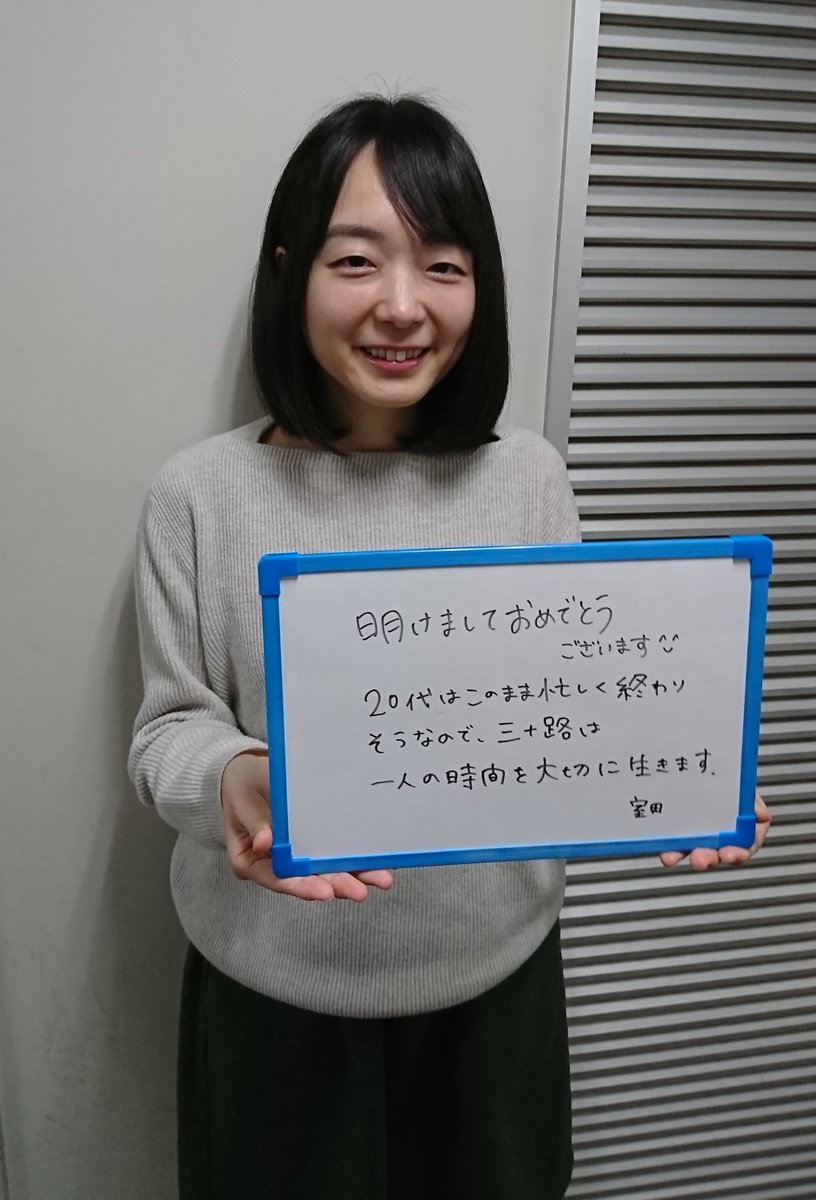 明けましておめでとう
ございます^^
20代はこのまま忙しく終わり
そうなので、三十路は
一人の時間を大切に生きます.
室田